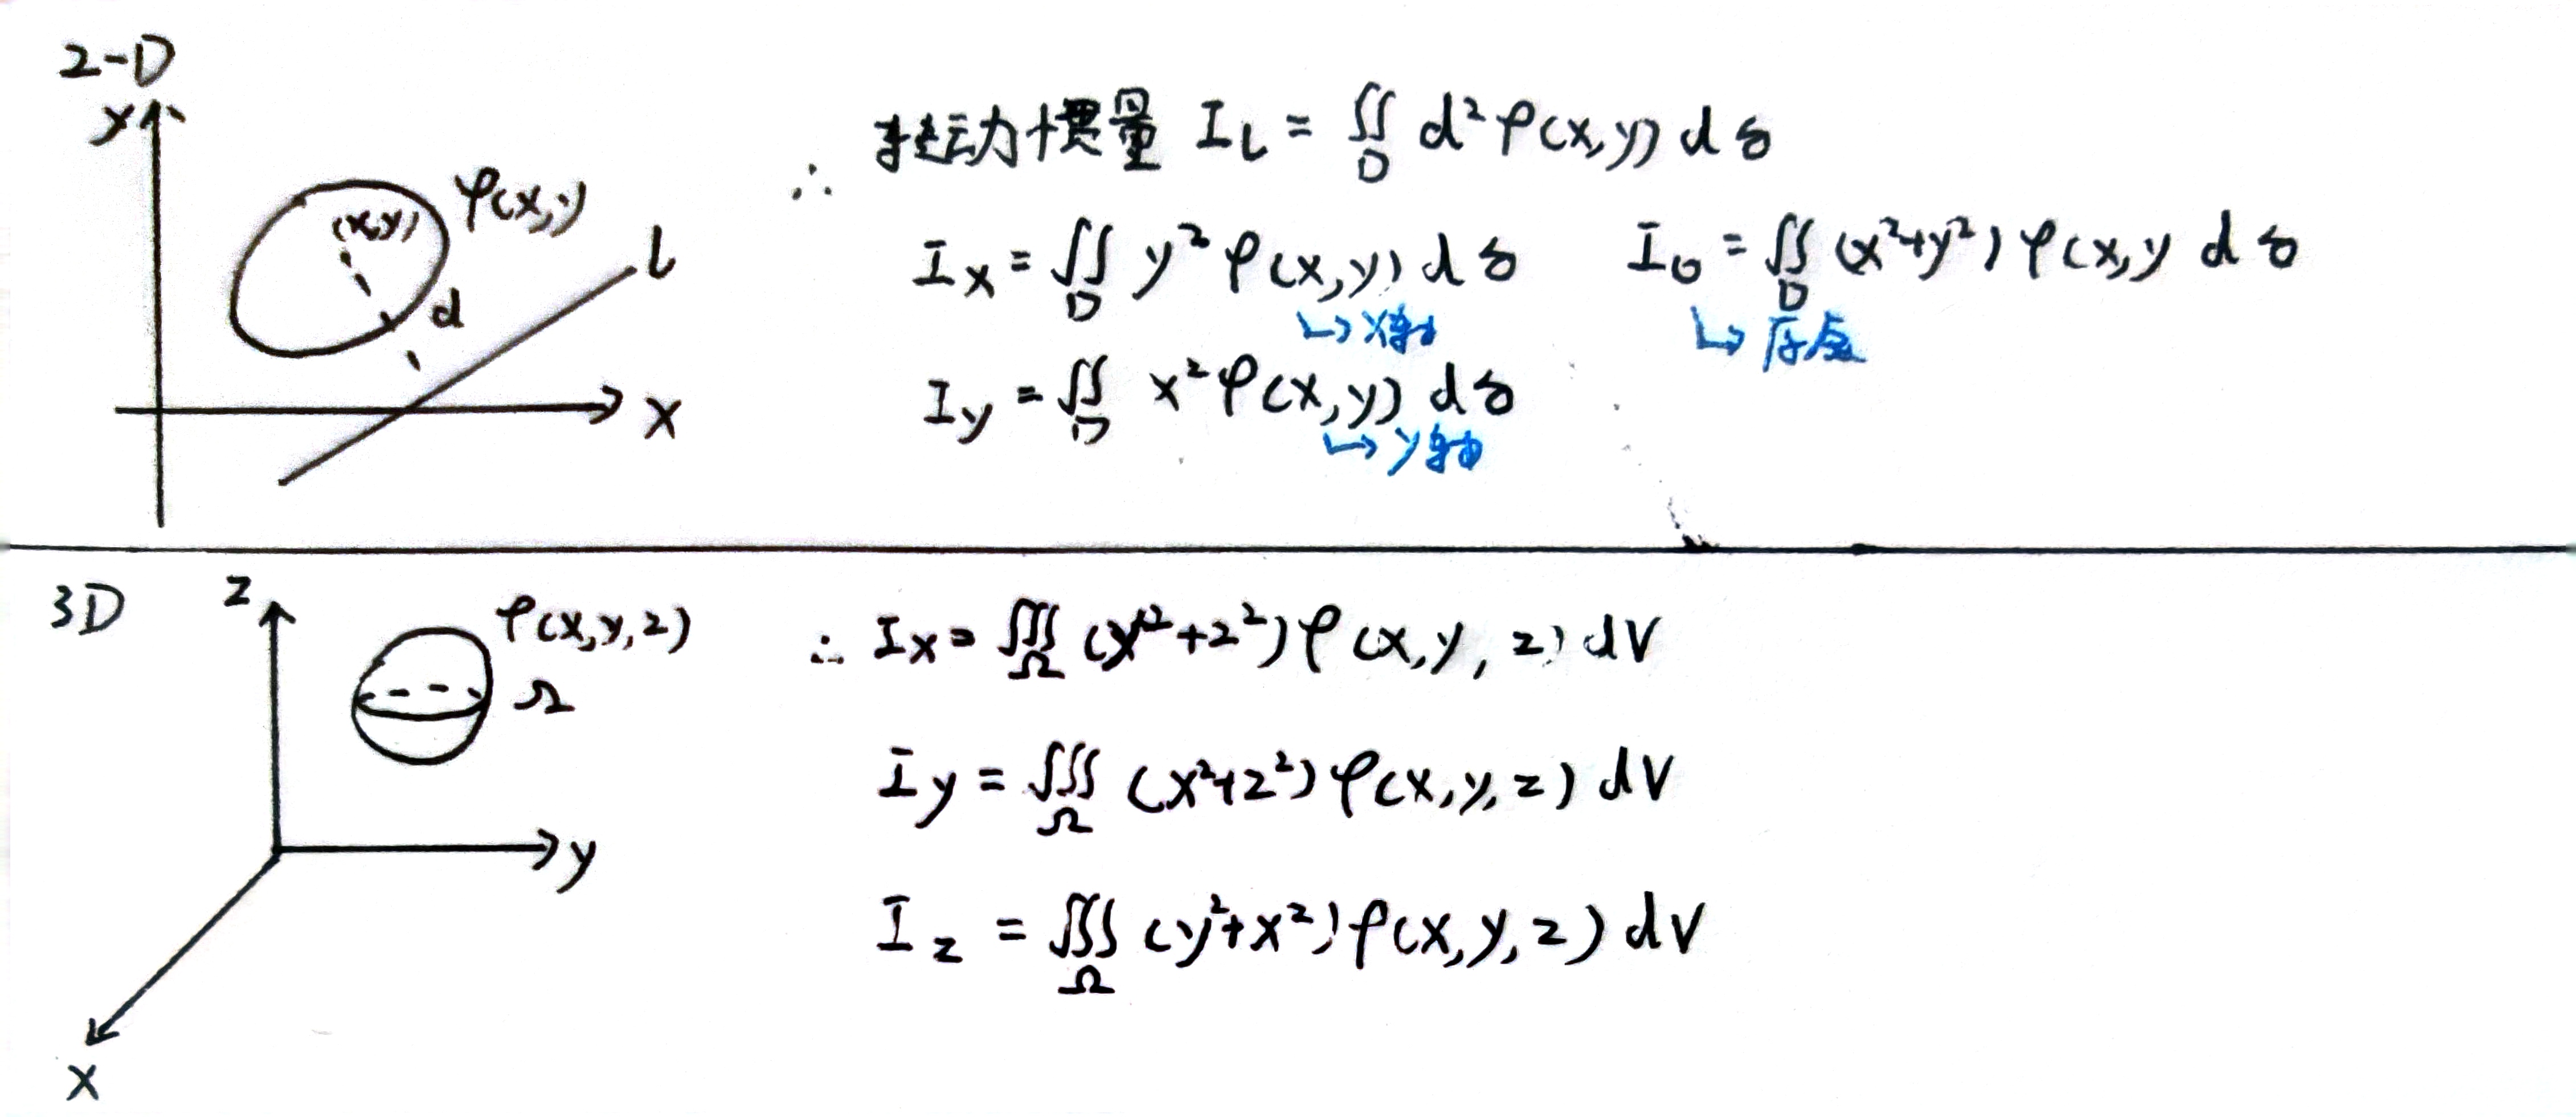 2-D
y
(x,y)
ρ(x,y)
l
d
x
∴ 转动惯量 I_l = ∬_D d²ρ(x,y) dσ
I_x = ∬_D y²ρ(x,y) dσ
↳ x轴
I_o = ∬_D (x²+y²)ρ(x,y dσ
↳ 原点
I_y = ∬_D x²ρ(x,y) dσ
↳ y轴
3D
z
ρ(x,y,z)
Ω
y
x
∴ I_x = ∭_Ω (y²+z²)ρ(x,y,z) dV
I_y = ∭_Ω (x²+z²)ρ(x,y,z) dV
I_z = ∭_Ω (y²+x²)ρ(x,y,z) dV